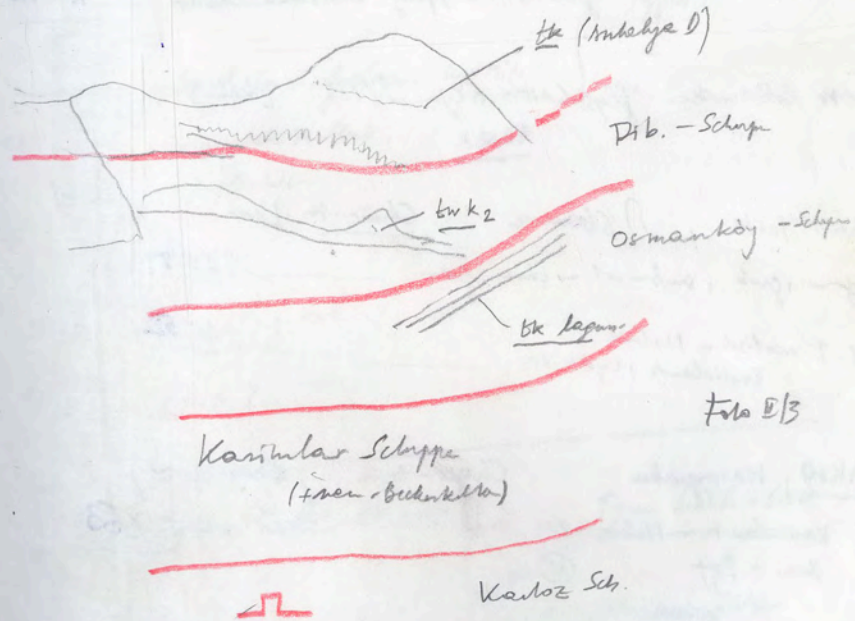 tk (Antalya D)
Dib. - Schuppe
twk2
Osmanköy - Schuppe
tk lagun.
Foto II/3
Kasimlar Schuppe
Karloz Sch.